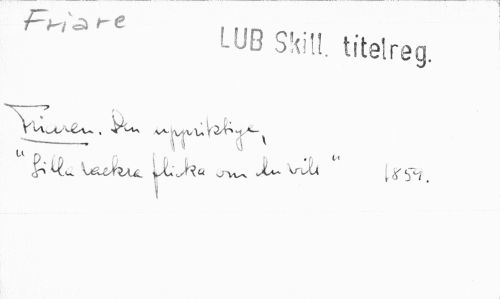 Friare
LUB Skill. titelreg.
Friaren. Den uppriktige,
"Lilla vackra flicka om du vill" 1859.